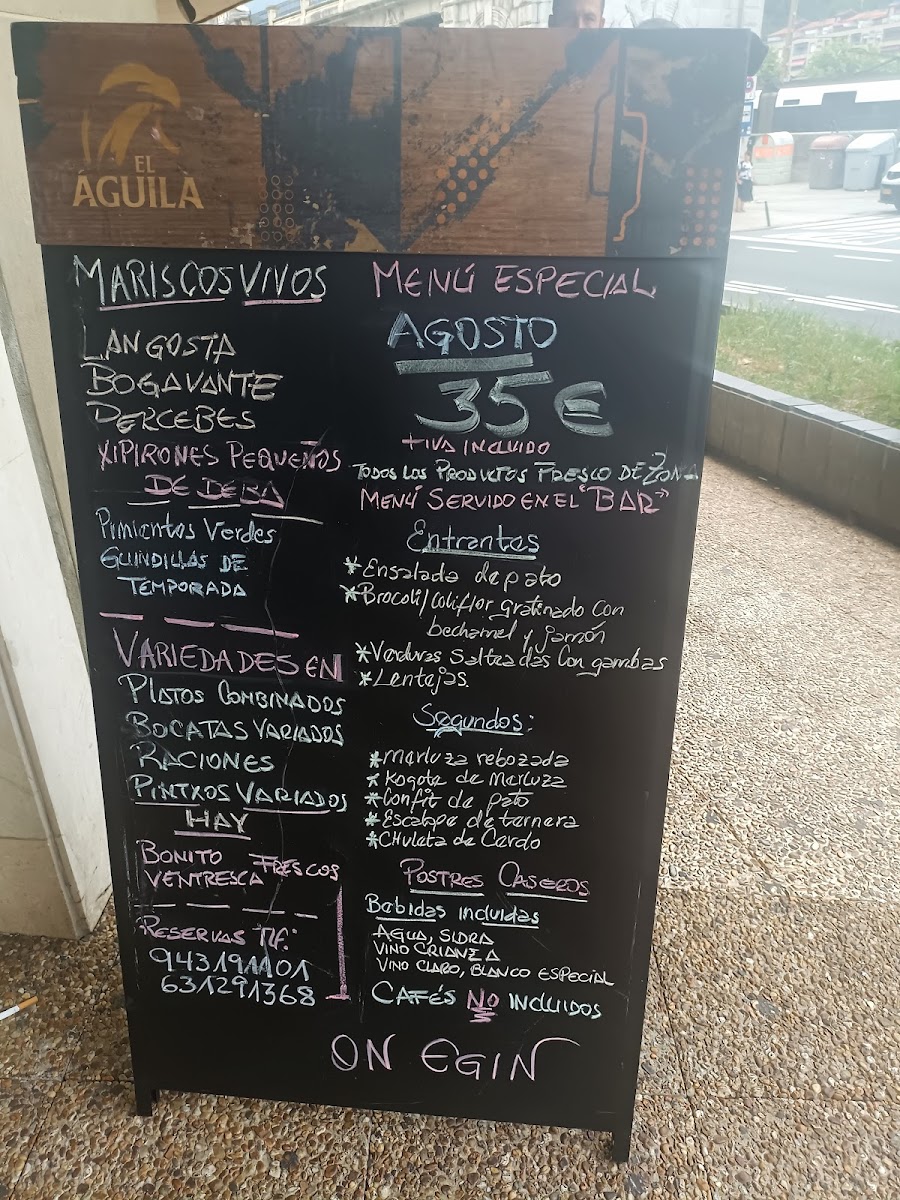 EL
ÁGUILA
MARISCOS VIVOS
LANGOSTA
BOGAVANTE
PERCEBES
XIPIRONES PEQUEÑOS
DE DEBA
Pimientos Verdes
GUINDILLAS DE
TEMPORADA
VARIEDADES EN
PLATOS COMBINADOS
BOCATAS VARIADOS
RACIONES
PINTXOS VARIADOS
HAY
BONITO FRESCOS
VENTRESCA
RESERVAS TLF:
943191101
631291368
MENÚ ESPECIAL
AGOSTO
35€
+IVA INCLUIDO
TODOS LOS PRODUCTOS FRESCO DE ZONA
MENÚ SERVIDO EN EL "BAR"
Entrantes
*Ensalada de pato
*Brocoli/Coliflor gratinado con
bechamel y jamón
*Verduras Salteadas Con gambas
*Lentejas.
Segundos:
*Merluza rebozada
*Kogote de Merluza
*Confit de pato
*Escalope de ternera
*CHuleta de Cerdo
POSTRES CASEROS
Bebidas incluidas
AGUA, SIDRA
VINO CRIANZA
VINO CLARO, BLANCO ESPECIAL
CAFÉS NO INCLUIDOS
ON EGIN